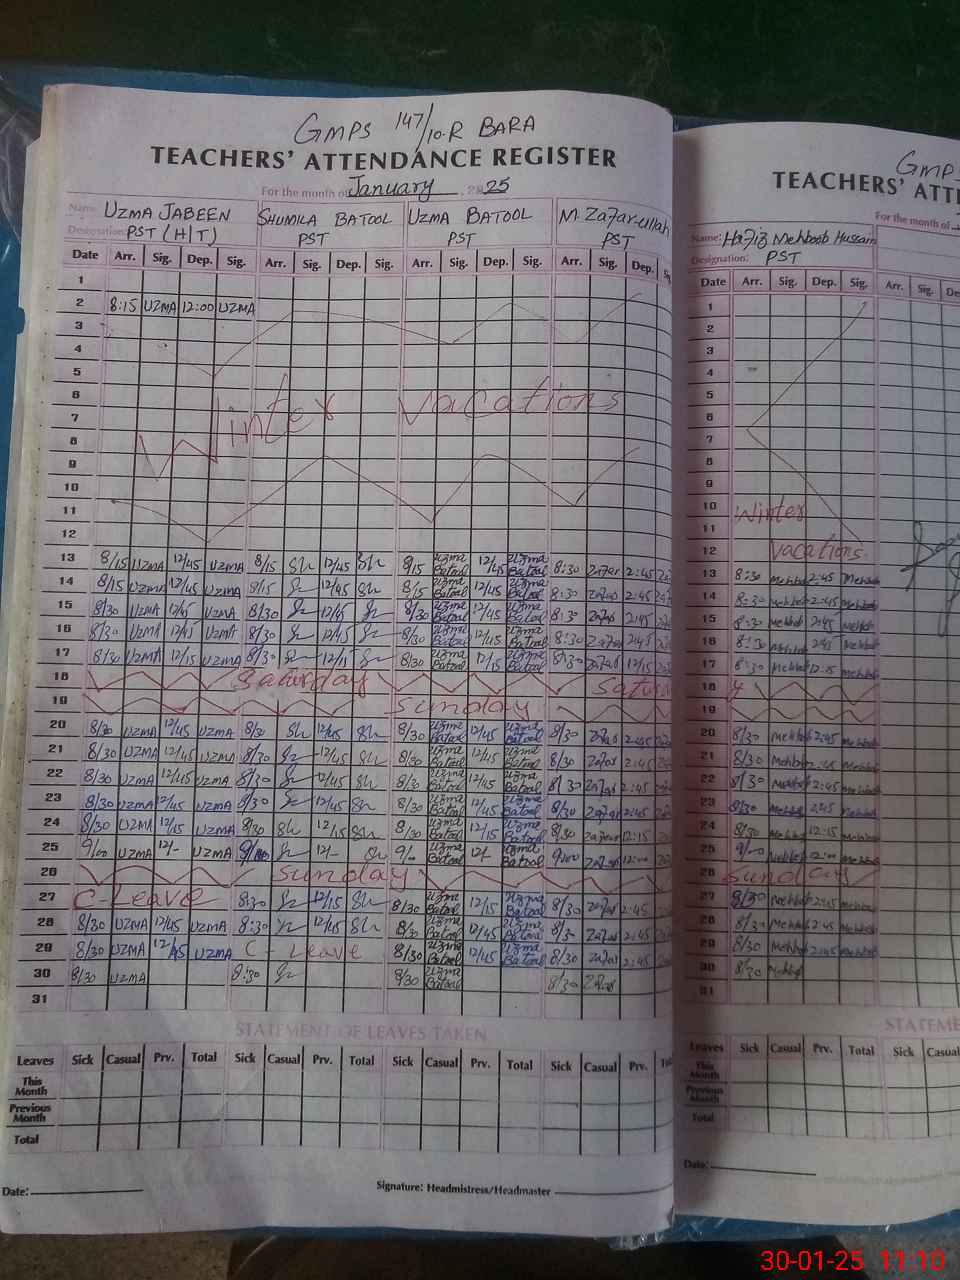 GMPS 147/10.R BARA
TEACHERS' ATTENDANCE REGISTER
For the month of January, 2025
Name: UZMA JABEEN SHUMILA BATOOL UZMA BATOOL M. Zafar-ullah
Designation: PST (H|T) PST PST PST
Date Arr. Sig. Dep. Sig. Arr. Sig. Dep. Sig. Arr. Sig. Dep. Sig. Arr. Sig. Dep.
1
2 8:15 UZMA 12:00 UZMA
3
4
5
6
7 Winter vacations
8
9
10
11
12
13 8/15 UZMA 12/45 UZMA 8/15 Sh 12/45 Sh 8/15 Uzma Batool 12/45 Uzma Batool 8:30 Zafar 2:45
14 8/15 UZMA 12/45 UZMA 8/15 12/45 Sh 8/15 Uzma Batool 12/45 Uzma Batool 8:30 Zafar 2:45
15 8/30 UZMA 12/45 UZMA 8/30 12/45 8/30 Uzma Batool 12/45 Uzma Batool 8:30 Zafar 2:45
16 8/30 UZMA 12/45 UZMA 8/30 12/45 8/30 Uzma Batool 12/45 Uzma Batool 8:30 Zafar 2:45
17 8/30 UZMA 12/15 UZMA 8/30 12/15 8/30 Uzma Batool 12/15 Uzma Batool 8:30 Zafar 12/15
18 Saturday
19 Sunday
20 8/30 UZMA 12/45 UZMA 8/30 Sh 12/45 Sh 8/30 Uzma Batool 12/45 Uzma Batool 8/30 Zafar 2:45
21 8/30 UZMA 12/45 UZMA 8/30 12/45 Sh 8/30 Uzma Batool 12/45 Uzma Batool 8/30 Zafar 2:45
22 8/30 UZMA 12/45 UZMA 8/30 12/45 Sh 8/30 Uzma Batool 12/45 Uzma Batool 8/30 Zafar 2:45
23 8/30 UZMA 12/45 UZMA 8/30 12/45 Sh 8/30 Uzma Batool 12/45 Uzma Batool 8/30 Zafar 2:45
24 8/30 UZMA 12/15 UZMA 8/30 Sh 12/15 Sh 8/30 Uzma Batool 12/15 Uzma Batool 8/30 Zafar 12:15
25 9/00 UZMA 12/- UZMA 9/00 12/- Sh 9/00 Uzma Batool 12/- Uzma Batool 9:00 Zafar 12:00
26 Sunday
27 C-Leave 8:30 12/15 Sh 8/30 Uzma Batool 12/15 Uzma Batool 8/30 Zafar 2:45
28 8/30 UZMA 12/45 UZMA 8:30 12/45 Sh 8/30 Uzma Batool 12/45 Uzma Batool 8/30 Zafar 2:45
29 8/30 UZMA 12/45 UZMA C - Leave 8/30 Uzma Batool 12/45 Uzma Batool 8/30 Zafar 2:45
30 8/30 UZMA 8:30 8/30 Uzma Batool 8/30 Zafar
31
STATEMENT OF LEAVES TAKEN
Leaves Sick Casual Prv. Total Sick Casual Prv. Total Sick Casual Prv. Total Sick Casual Prv.
This Month
Previous Month
Total
Date: Signature: Headmistress/Headmaster
GMPS
TEACHERS' ATTE
For the month of
Name: Hafiz Mehboob Hussain
Designation: PST
Date Arr. Sig. Dep. Sig. Arr. Sig. Dep.
1
2
3
4
5
6
7
8
9
10 Winter
11
12 vacations
13 8:30 Mehbob 2:45 Mehbob
14 8:30 Mehbob 2:45 Mehbob
15 8:30 Mehbob 2:45 Mehbob
16 8:30 Mehbob 2:45 Mehbob
17 8:30 Mehbob 12:15 Mehbob
18
19
20 8/30 Mehbob 2:45 Mehbob
21 8/30 Mehbob 2:45 Mehbob
22 8/30 Mehbob 2:45 Mehbob
23 8/30 Mehbob 2:45 Mehbob
24 8/30 Mehbob 12:15 Mehbob
25 9/00 Mehbob 12:00 Mehbob
26 Sunday
27 8/30 Mehbob 2:45 Mehbob
28 8/30 Mehbob 2:45 Mehbob
29 8/30 Mehbob 2:45 Mehbob
30 8/30 Mehbob
31
STATEME
Leaves Sick Casual Prv. Total Sick Casual
This Month
Previous Month
Total
Date:
30-01-25 11:10